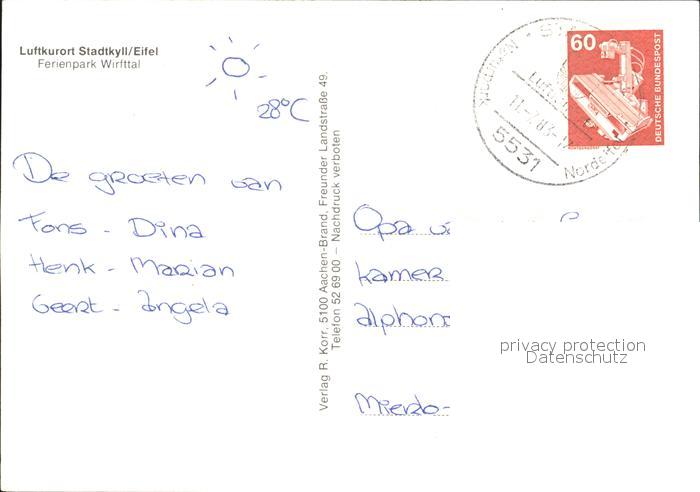 Luftkurort Stadtkyll/Eifel
Ferienpark Wirfttal
28°C
De groeten van
Fons - Dina
Henk - Marian
Geert - Angela
Verlag R. Korr, 5100 Aachen-Brand, Freunder Landstraße 49.
Telefon 52 69 00 – Nachdruck verboten
60
DEUTSCHE BUNDESPOST
5531
Opa
kamer
alphons
Mierlo-
privacy protection
Datenschutz